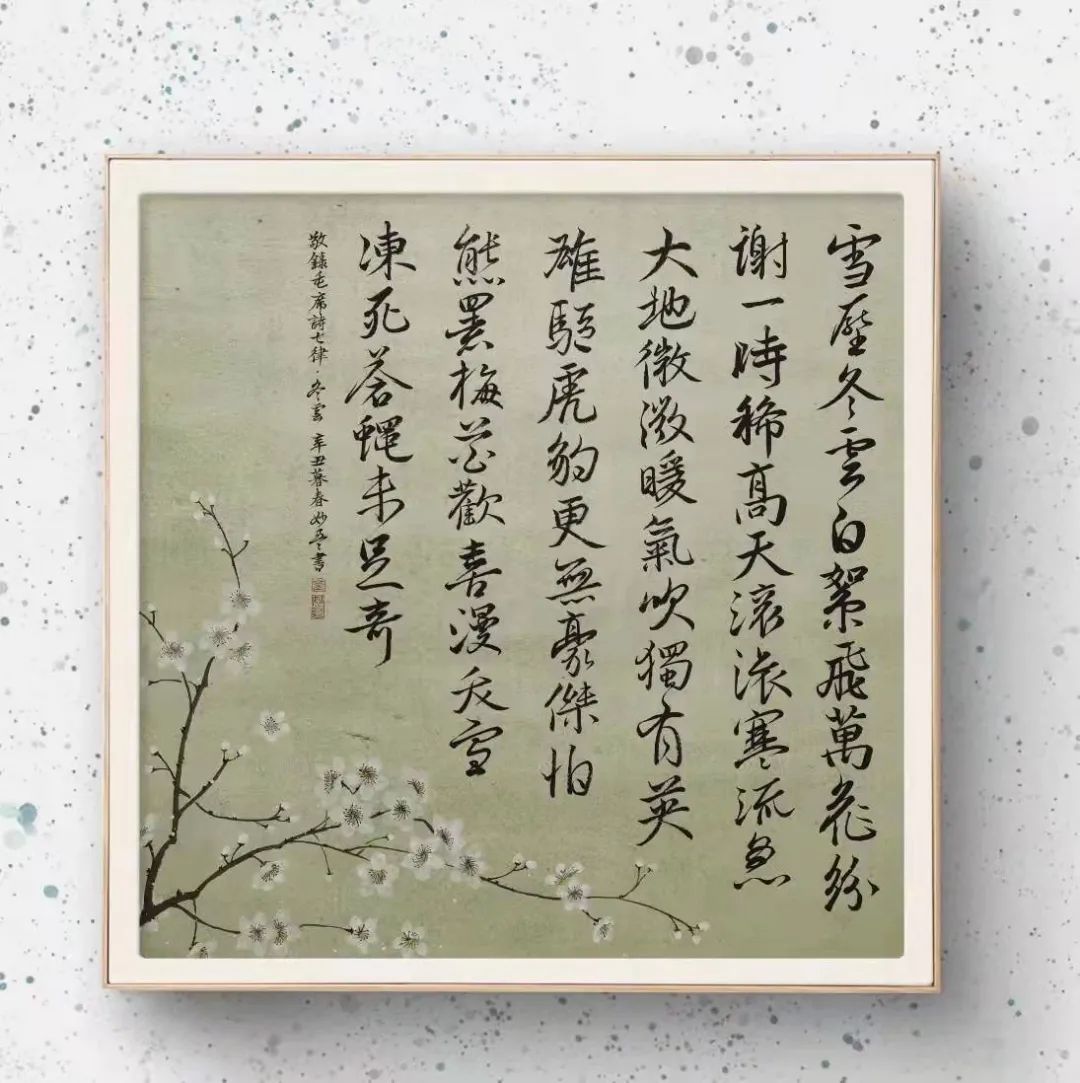 雪壓冬雲白絮飛萬花紛
謝一時稀高天滾滾寒流急
大地微微暖氣吹獨有英
雄驅虎豹更無豪傑怕
熊羆梅花歡喜漫天雪
凍死蒼蠅未足奇
敬錄毛席詩七律·冬雲 辛丑暮春妙書